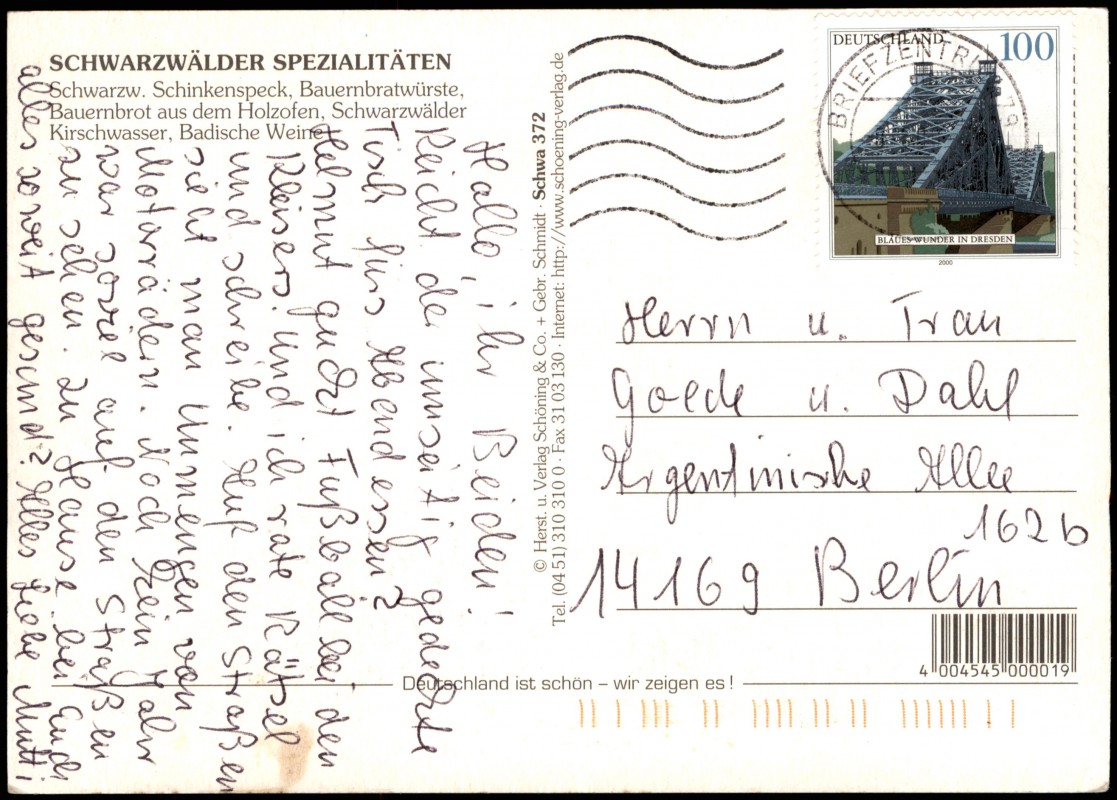 SCHWARZWÄLDER SPEZIALITÄTEN
Schwarzw. Schinkenspeck, Bauernbratwürste,
Bauernbrot aus dem Holzofen, Schwarzwälder
Kirschwasser, Badische Weine
Hallo, ihr Beiden!
Reicht der umseitig gedeckte
Tisch fürs Abendessen?
Helmut guckt Fußball bei den
Kleisers. Und ich rate Rätsel
und schreibe. Auf den Straßen
sieht man Unmengen von
Motorrädern. Noch kein Jahr
war soviel auf den Straßen
zu sehen. Zu Hause bei Euch
alles soweit gesund? Alles Liebe Mutti
© Herst. u. Verlag Schöning & Co. + Gebr. Schmidt · Schwa 372
Tel. (04 51) 310 310 0 · Fax 31 03 130 · Internet: http://www.schoening-verlag.de
DEUTSCHLAND 100
BRIEFZENTRUM 79
BLAUES WUNDER IN DRESDEN
2000
Herrn u. Frau
Goede u. Dahl
Argentinische Allee
162 b
14169 Berlin
4 004545 000019
Deutschland ist schön – wir zeigen es!